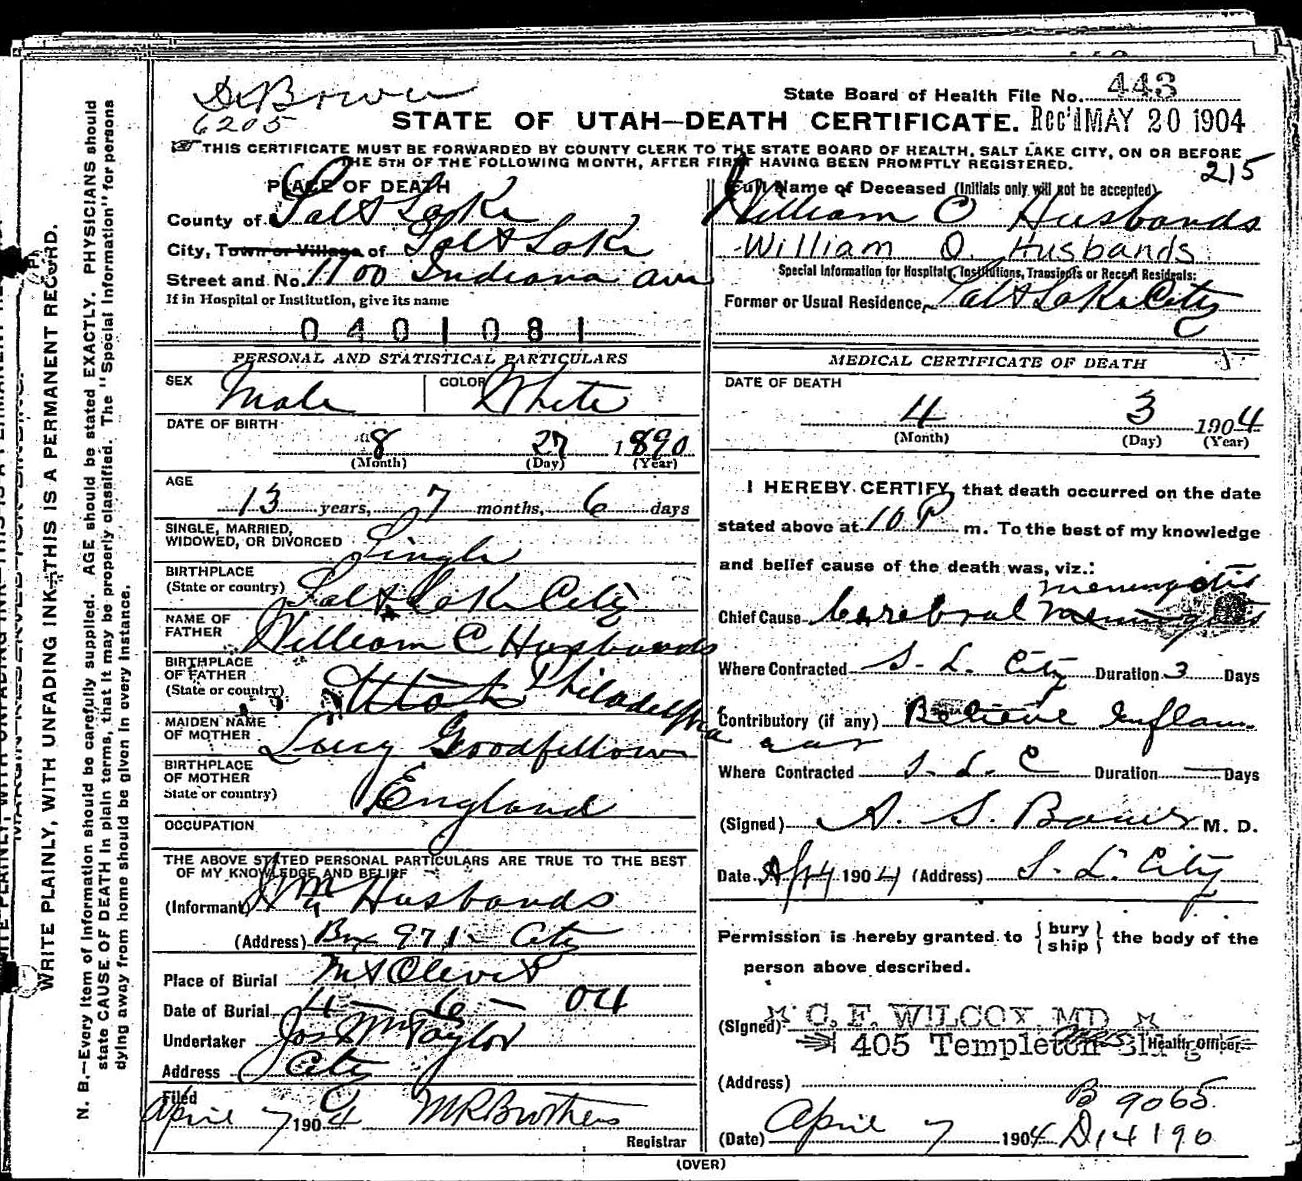 Dr Bower
6205
State Board of Health File No. 443
STATE OF UTAH—DEATH CERTIFICATE. Rec'd MAY 20 1904
THIS CERTIFICATE MUST BE FORWARDED BY COUNTY CLERK TO THE STATE BOARD OF HEALTH, SALT LAKE CITY, ON OR BEFORE
THE 5TH OF THE FOLLOWING MONTH, AFTER FIRST HAVING BEEN PROMPTLY REGISTERED.
215
PLACE OF DEATH
County of Salt Lake
City, Town or Village of Salt Lake
Street and No. 1100 Indiana ave
If in Hospital or Institution, give its name
0401081
Full Name of Deceased (Initials only will not be accepted)
William O Husbands
William O. Husbands
Special Information for Hospitals, Institutions, Transients or Recent Residents:
Former or Usual Residence, Salt Lake City
C
PERSONAL AND STATISTICAL PARTICULARS
SEX Male COLOR White
DATE OF BIRTH
8 27 1890
(Month) (Day) (Year)
AGE
13 years, 7 months, 6 days
SINGLE, MARRIED,
WIDOWED, OR DIVORCED Single
BIRTHPLACE
(State or country) Salt Lake City
NAME OF
FATHER William C Husbands
BIRTHPLACE
OF FATHER
(State or country) Utah Philadelphia
MAIDEN NAME
OF MOTHER Lucy Goodfellow
BIRTHPLACE
OF MOTHER
State or country) England
OCCUPATION
THE ABOVE STATED PERSONAL PARTICULARS ARE TRUE TO THE BEST
OF MY KNOWLEDGE AND BELIEF
(Informant) Wm Husbands
(Address) Bx 971 - City
Place of Burial Mt Olivet
Date of Burial 4 - 6 - 04
Undertaker Jos Wm Taylor
Address City
Filed
April 7 1904 M R Brothers
Registrar
MEDICAL CERTIFICATE OF DEATH
DATE OF DEATH
4 3 1904
(Month) (Day) (Year)
I HEREBY CERTIFY, that death occurred on the date
stated above at 10 P m. To the best of my knowledge
and belief cause of the death was, viz.:
meningitis
Chief Cause Cerebral Meningitis
Where Contracted S. L. City Duration 3 Days
Contributory (if any) Believe Inflam
ear
Where Contracted S. L. C Duration — Days
(Signed) A. S. Bower M. D.
Date Apr 4 1904 (Address) S. L. City
Permission is hereby granted to { bury ship } the body of the
person above described.
(Signed) C. F. WILCOX, MD
405 Templeton Health Officer
(Address)
B 9065
(Date) April 7 1904 D14190
(OVER)
WRITE PLAINLY, WITH UNFADING INK—THIS IS A PERMANENT RECORD.
N. B.—Every item of information should be carefully supplied. AGE should be stated EXACTLY. PHYSICIANS should
state CAUSE OF DEATH in plain terms, that it may be properly classified. The "Special Information" for persons
dying away from home should be given in every instance.